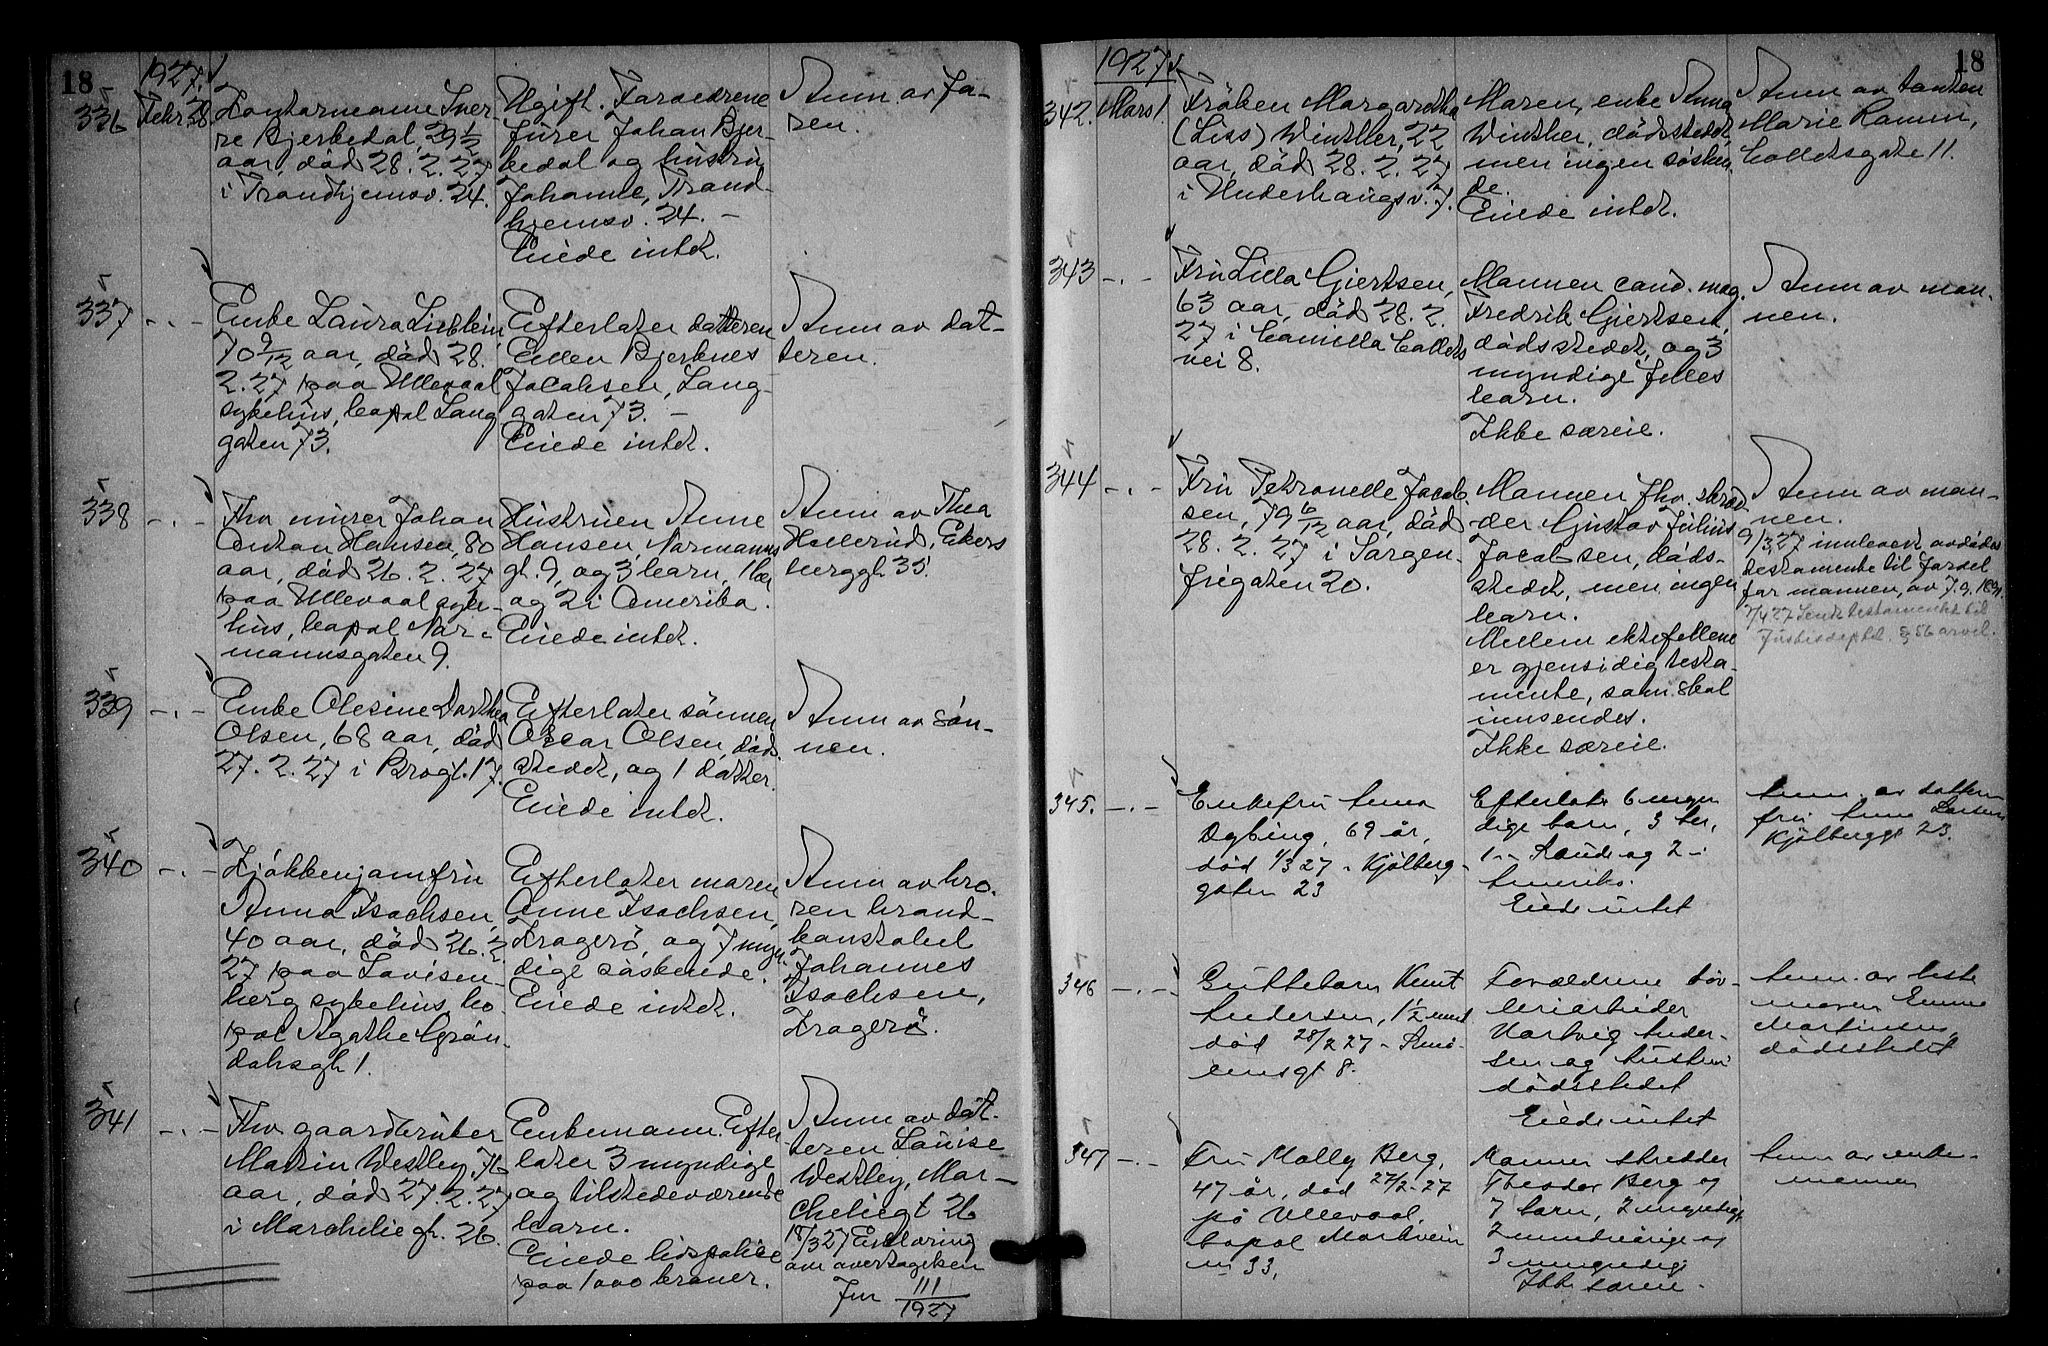 18
1927.
336 Febr. 28. Kontormann Sver-
re Bjerkedal, 29 1/2
aar, død 28. 2. 27
i Trondhjemsv. 24.
Ugift. Foreldrene
furer Johan Bjer-
kedal og hustru
Johanne, Trond-
hjemsv. 24. –
Eiede intet.
Anm. av fa-
ren.
337 -"- Enke Laura Lieblein
70 9/12 aar, død 28.
2. 27 paa Ullevaal
sykehus, bopæl Lang
gaten 73.
Efterlater datteren
Ellen Bjerknes
Jacobsen, Lang-
gaten 73. –
Eiede intet.
Anm av dat-
teren.
338 -"- Fhv murer Johan
Anton Hansen, 80
aar, død 26. 2. 27
paa Ullevaal syke-
hus, bopæl Nor-
mannsgaten 9.
Hustruen Anne
Hansen, Normanns
gt. 9, og 3 barn, 1 her
og 2 i Amerika.
Eiede intet.
Anm av Thea
Hellerud, Ekers
berggt. 35.
339 -"- Enke Olesine Dorthea
Olsen, 68 aar, død
27. 2. 27 i Brogt. 17.
Efterlater sønnen
Oscar Olsen, døds-
stedet, og 1 datter.
Eiede intet.
Anm av søn-
nen.
340 -"- Kjøkkenjomfru
Anna Isachsen,
40 aar, død 26. 2.
27 paa Lovisen-
berg sykehus, bo
pæl Agathe Grøn-
dahsgt. 1.
Efterlater moren
Anne Isachsen,
Kragerø, og 7 myn-
dige søskende.
Eiede intet.
Anm av bro-
ren brand-
konstabel
Johannes
Isachsen,
Kragerø.
341 -"- Fhv gaardbruker
Martin Westley, 76
aar, død 27. 2. 27
i Marcheliegt. 26.
Enkemann. Efter
later 3 myndige
og tilstedeværende
barn.
Eiede livspolise
paa 1000 kroner.
Anm av dat-
teren Louise
Westley, Mar-
cheliegt 26
18/3 27 Erklæring
om overtagelsen
Jnr 111/1927
18
1927
342. Mars 1. Frøken Margarethe
(Liss) Winther, 22
aar, død 28. 2. 27
i Underhaugsv. 7.
Moren, enke Anna
Winther, dødsstedet,
men ingen søsken-
de.
Eiede intet.
Anm av tanten
Marie Ramm,
Colletsgate 11.
343 -"- Fru Lilla Gjertsen,
63 aar, død 28. 2.
27 i Camilla Collets
vei 8.
Mannen cand. mag.
Fredrik Gjertsen,
dødsstedet, og 3
myndige felles
barn.
Ikke særeie.
Anm av man-
nen.
344 -"- Fru Petronelle Jacob
sen, 79 6/12 aar, død
28. 2. 27 i Sorgen-
frigaten 20.
Mannen fhv. skræd-
der Gustav Julius
Jacobsen, døds-
stedet, men ingen
barn.
Mellem ektefellene
er gjensidig testa-
mente, som skal
innsendes.
Ikke særeie.
Anm av man-
nen.
9/3 27 innlevert avdødes
testamente til fordel
for mannen, av 7. 9. 1891.
7/4 27 Sendt testamentet til
Justisdeptet. § 56 arvel.
345. -"- Enkefru Anna
Dybing, 69 år,
død 1/3 27 – Kjølberg-
gaten 23
Efterlater 6 myn
dige barn, 3 her,
1 – Sande og 2 i
Amerika.
Eiede intet
Anm. av datter
fru Anna Larsen
Kjølberggt 23.
346 -"- Guttebarn Knut
Andersen, 1 1/2 mnd
død 28/2 27 –
gt 8.
Foreldrene
arbeider
Hartvig Ander-
sen og hustru
dødsstedet
Eiede intet
Anm. av beste
moren Emma
Martinsen,
dødsstedet
347 -"- Fru Molly Berg,
47 år, død 27/2-27
på Ullevaal,
bopæl Markvein
nr 33.
Mannen skredder
Theodor Berg og
7 barn, 2 myndige
2 mindreårige og
3 umyndig.
Ikke særeie.
Anm av enke-
mannen